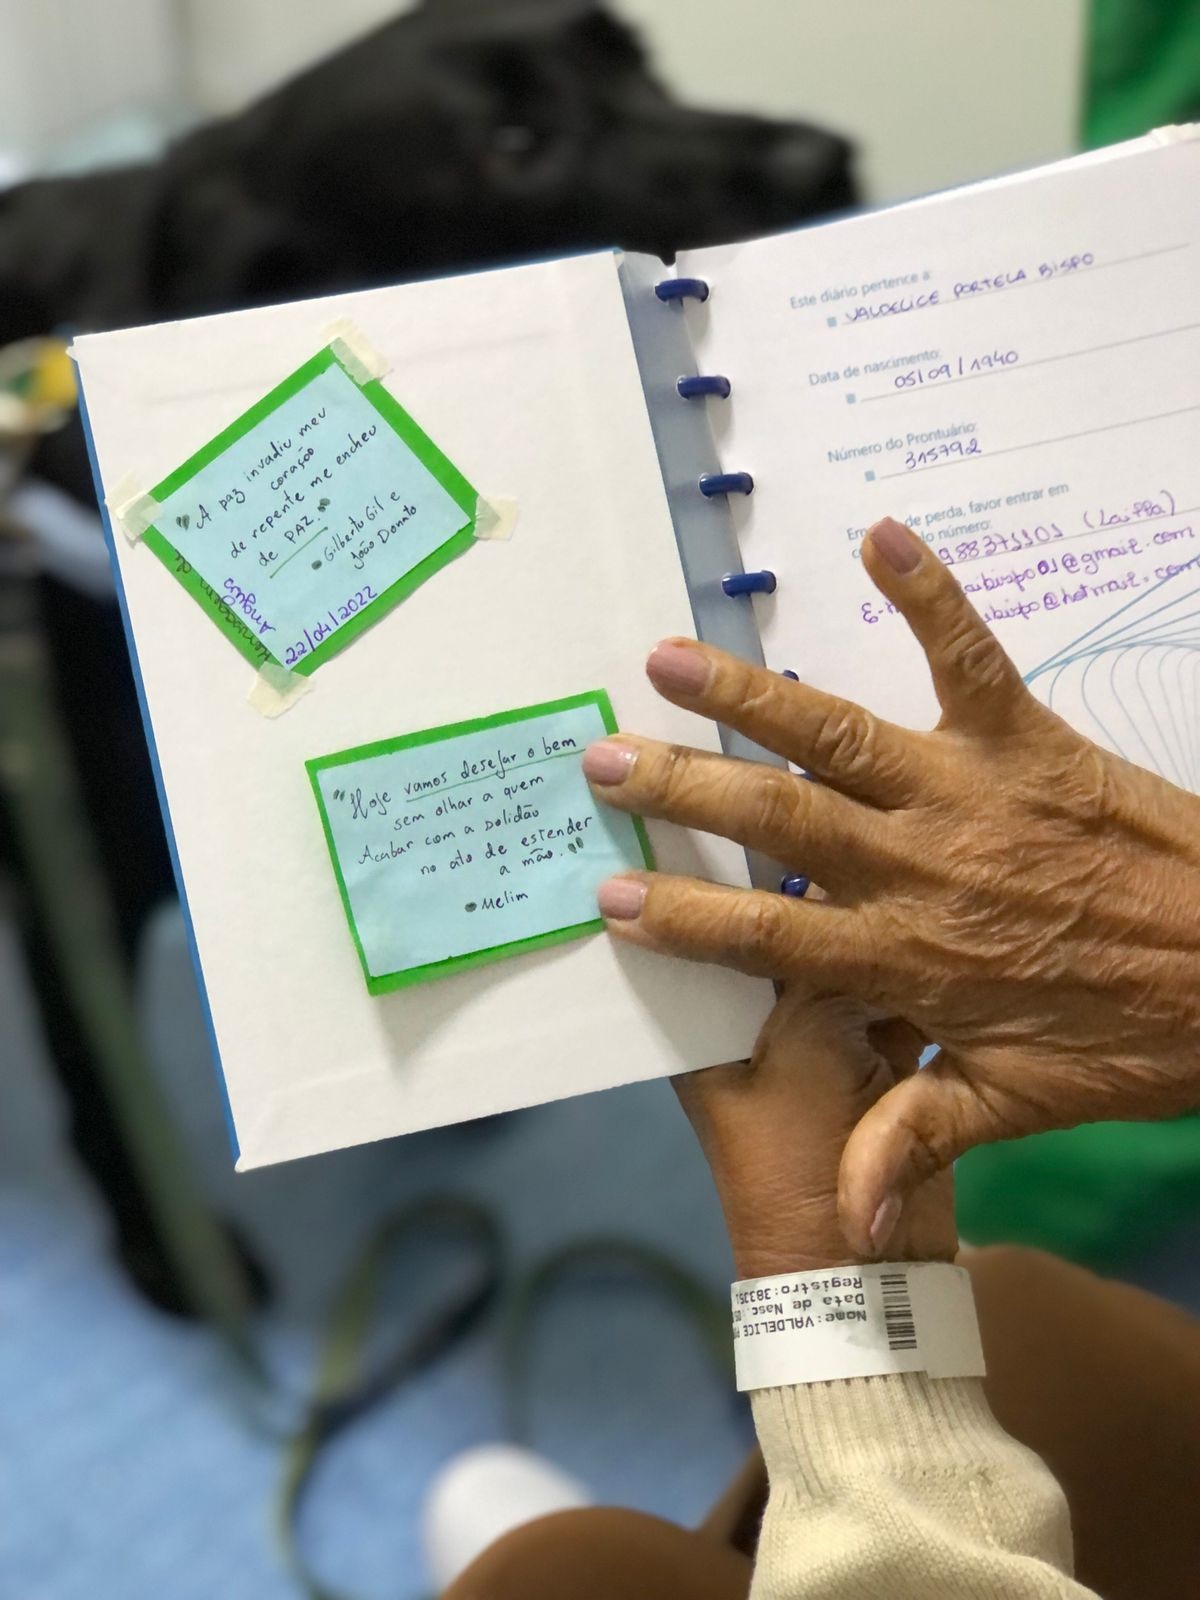 "A paz invadiu meu
coração
de repente me encheu
de PAZ."
• Gilberto Gil e
João Donato
22/04/2022
Homenagem de
Angus
"Hoje vamos desejar o bem
sem olhar a quem
Acabar com a solidão
no ato de estender
a mão."
• Melim
Este diário pertence a:
VALDELICE PORTELA BISPO
Data de nascimento:
05/09/1940
Número do Prontuário:
315792
de perda, favor entrar em
número:
988371101 (Laissa)
@gmail.com
@hotmail.com
Nome:VALDELICE
Data de Nasc.:05
Registro:38335